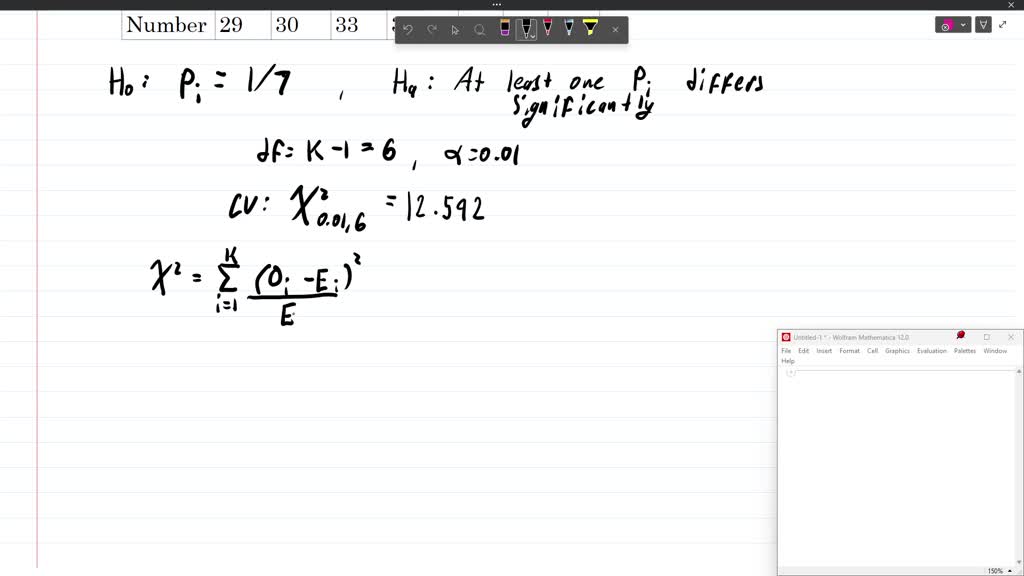 Number 29 30 33
H₀: Pᵢ = 1/7 , Hₐ: At least one Pᵢ differs
significantly
df = K - 1 = 6 , α = 0.01
CV: χ²₀.₀₁,₆ = 12.592
χ² = Σᵢ₌₁ᴷ (Oᵢ - Eᵢ)² / E
Untitled-1 * - Wolfram Mathematica 12.0
File Edit Insert Format Cell Graphics Evaluation Palettes Window
Help
150%